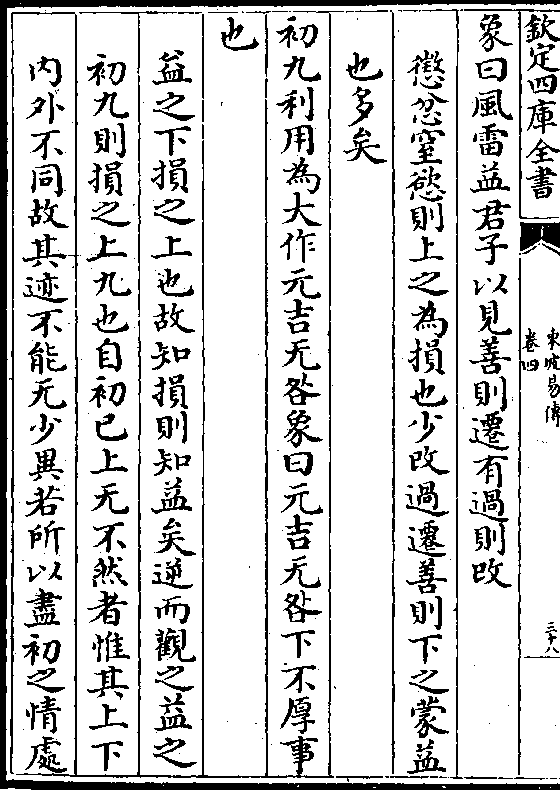 欽定四庫全書
東坡易傳
卷四
三十八
象曰風雷益君子以見善則遷有過則改
懲忿窒慾則上之為損也少改過遷善則下之蒙益
也多矣
初九利用為大作元吉无咎象曰元吉无咎下不厚事
也
益之下損之上也故知損則知益矣逆而觀之益之
初九則損之上九也自初已上无不然者惟其上下
内外不同故其迹不能无少異若所以盡初之情處